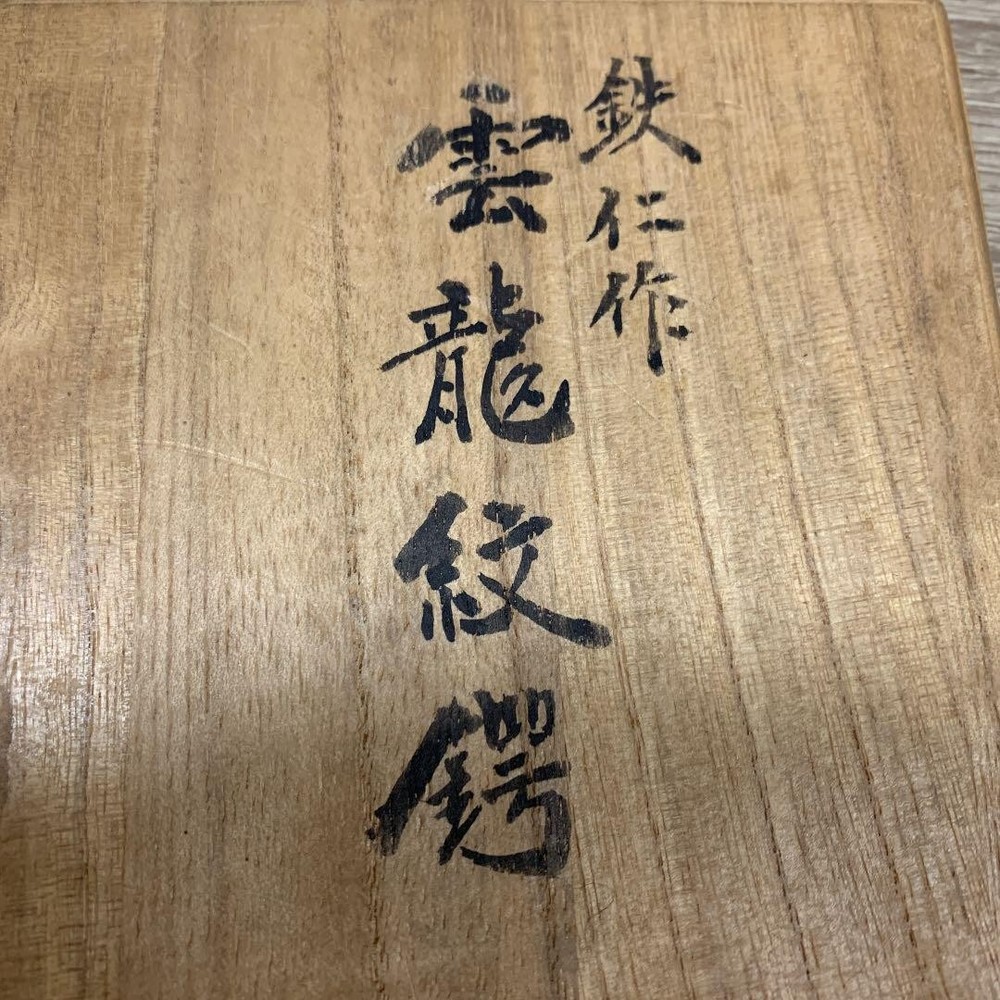 鉄仁作
雲龍紋鍔